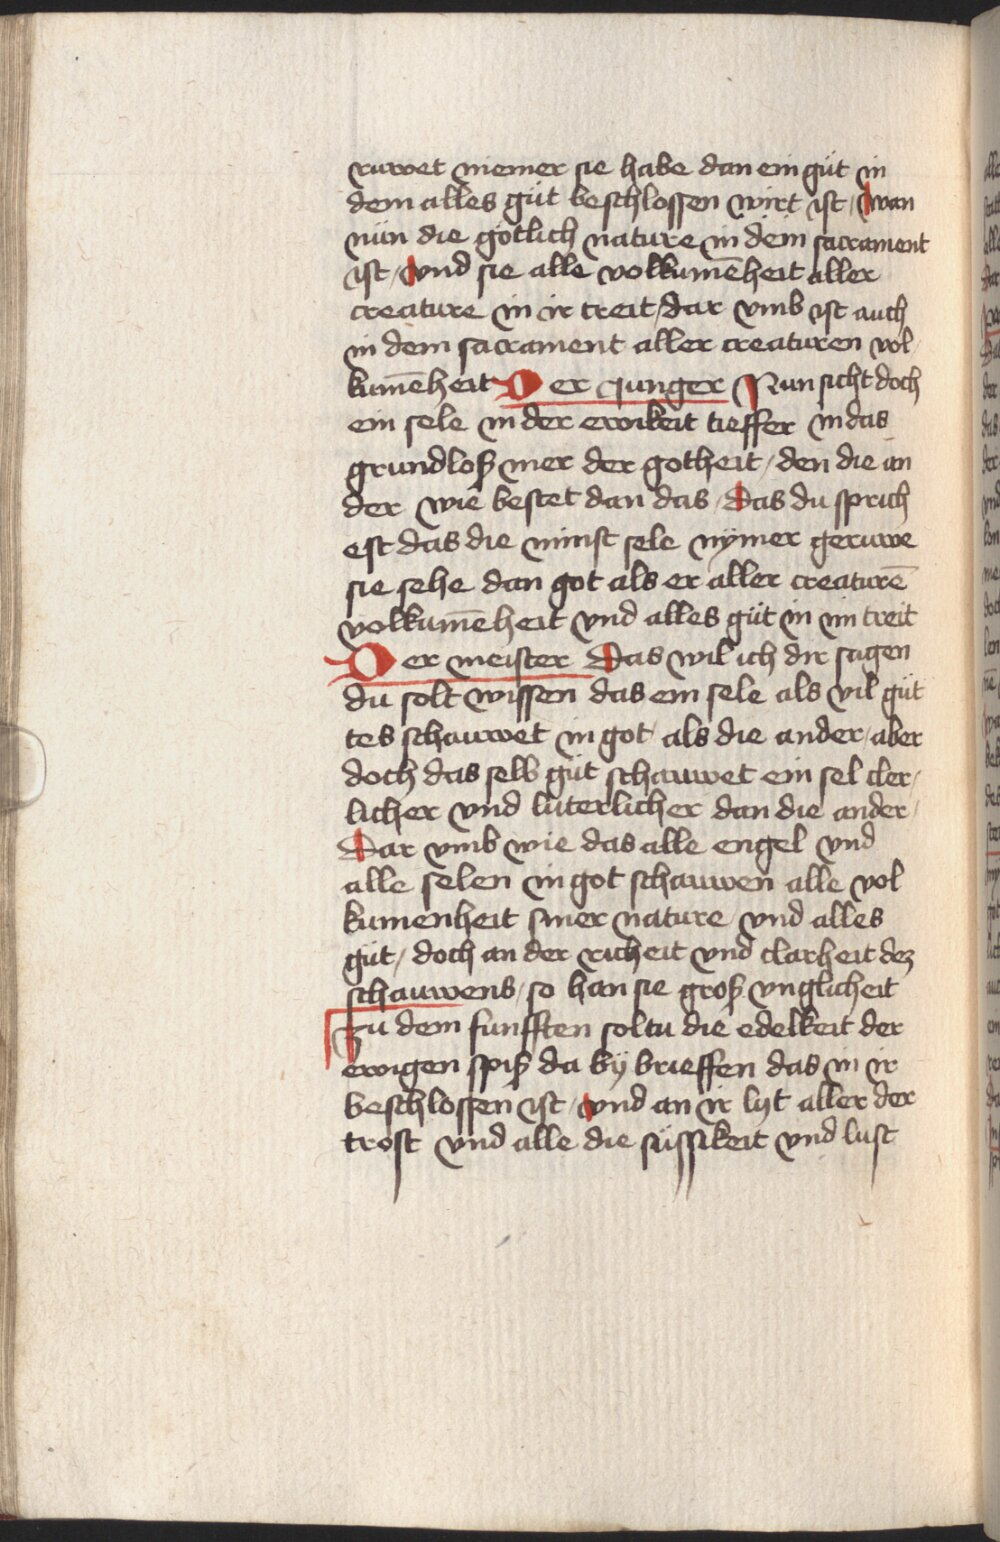 ruwet niemer sie habe dan ein güt in
dem alles güt beschlossen wirt ist / wan
nün die götlich nature in dem sacrament
ist / vnd sie alle volkumēheit aller
creature in ir treit / dar vmb ist auch
in dem sacrament aller creaturen vol
kumēheit Der Junger Nun sicht doch
ein sele in der ewikeit tieffer in das
grundloß mer der gotheit / den die an
der wie bestet dan das / das du sprich
est das die minst sele nÿmer geruwe
sie sehe dan got als er aller creaturē
volkumēheit vnd alles güt in im treit
Der meister Das wil ich dir sagen
du solt wissen das ein sele als vil güt
tes schauwet in got / als die ander / aber
doch das selb güt schauwet ein sel cler /
licher vnd luterlicher dan die ander /
Dar vmb wie das alle engel vnd
alle selen in got schauwen alle vol
kumenheit siner nature / vnd alles
güt / doch an der richeit vnd clarheit dez
schauwens / so han sie groß vnglicheit
Zu dem funfften soltu die edelkeit der
ewigen spiß da bÿ brieffen das in ir
beschlossen ist / vnd an ir lÿt aller der
trost vnd alle die süssikeit vnd lust